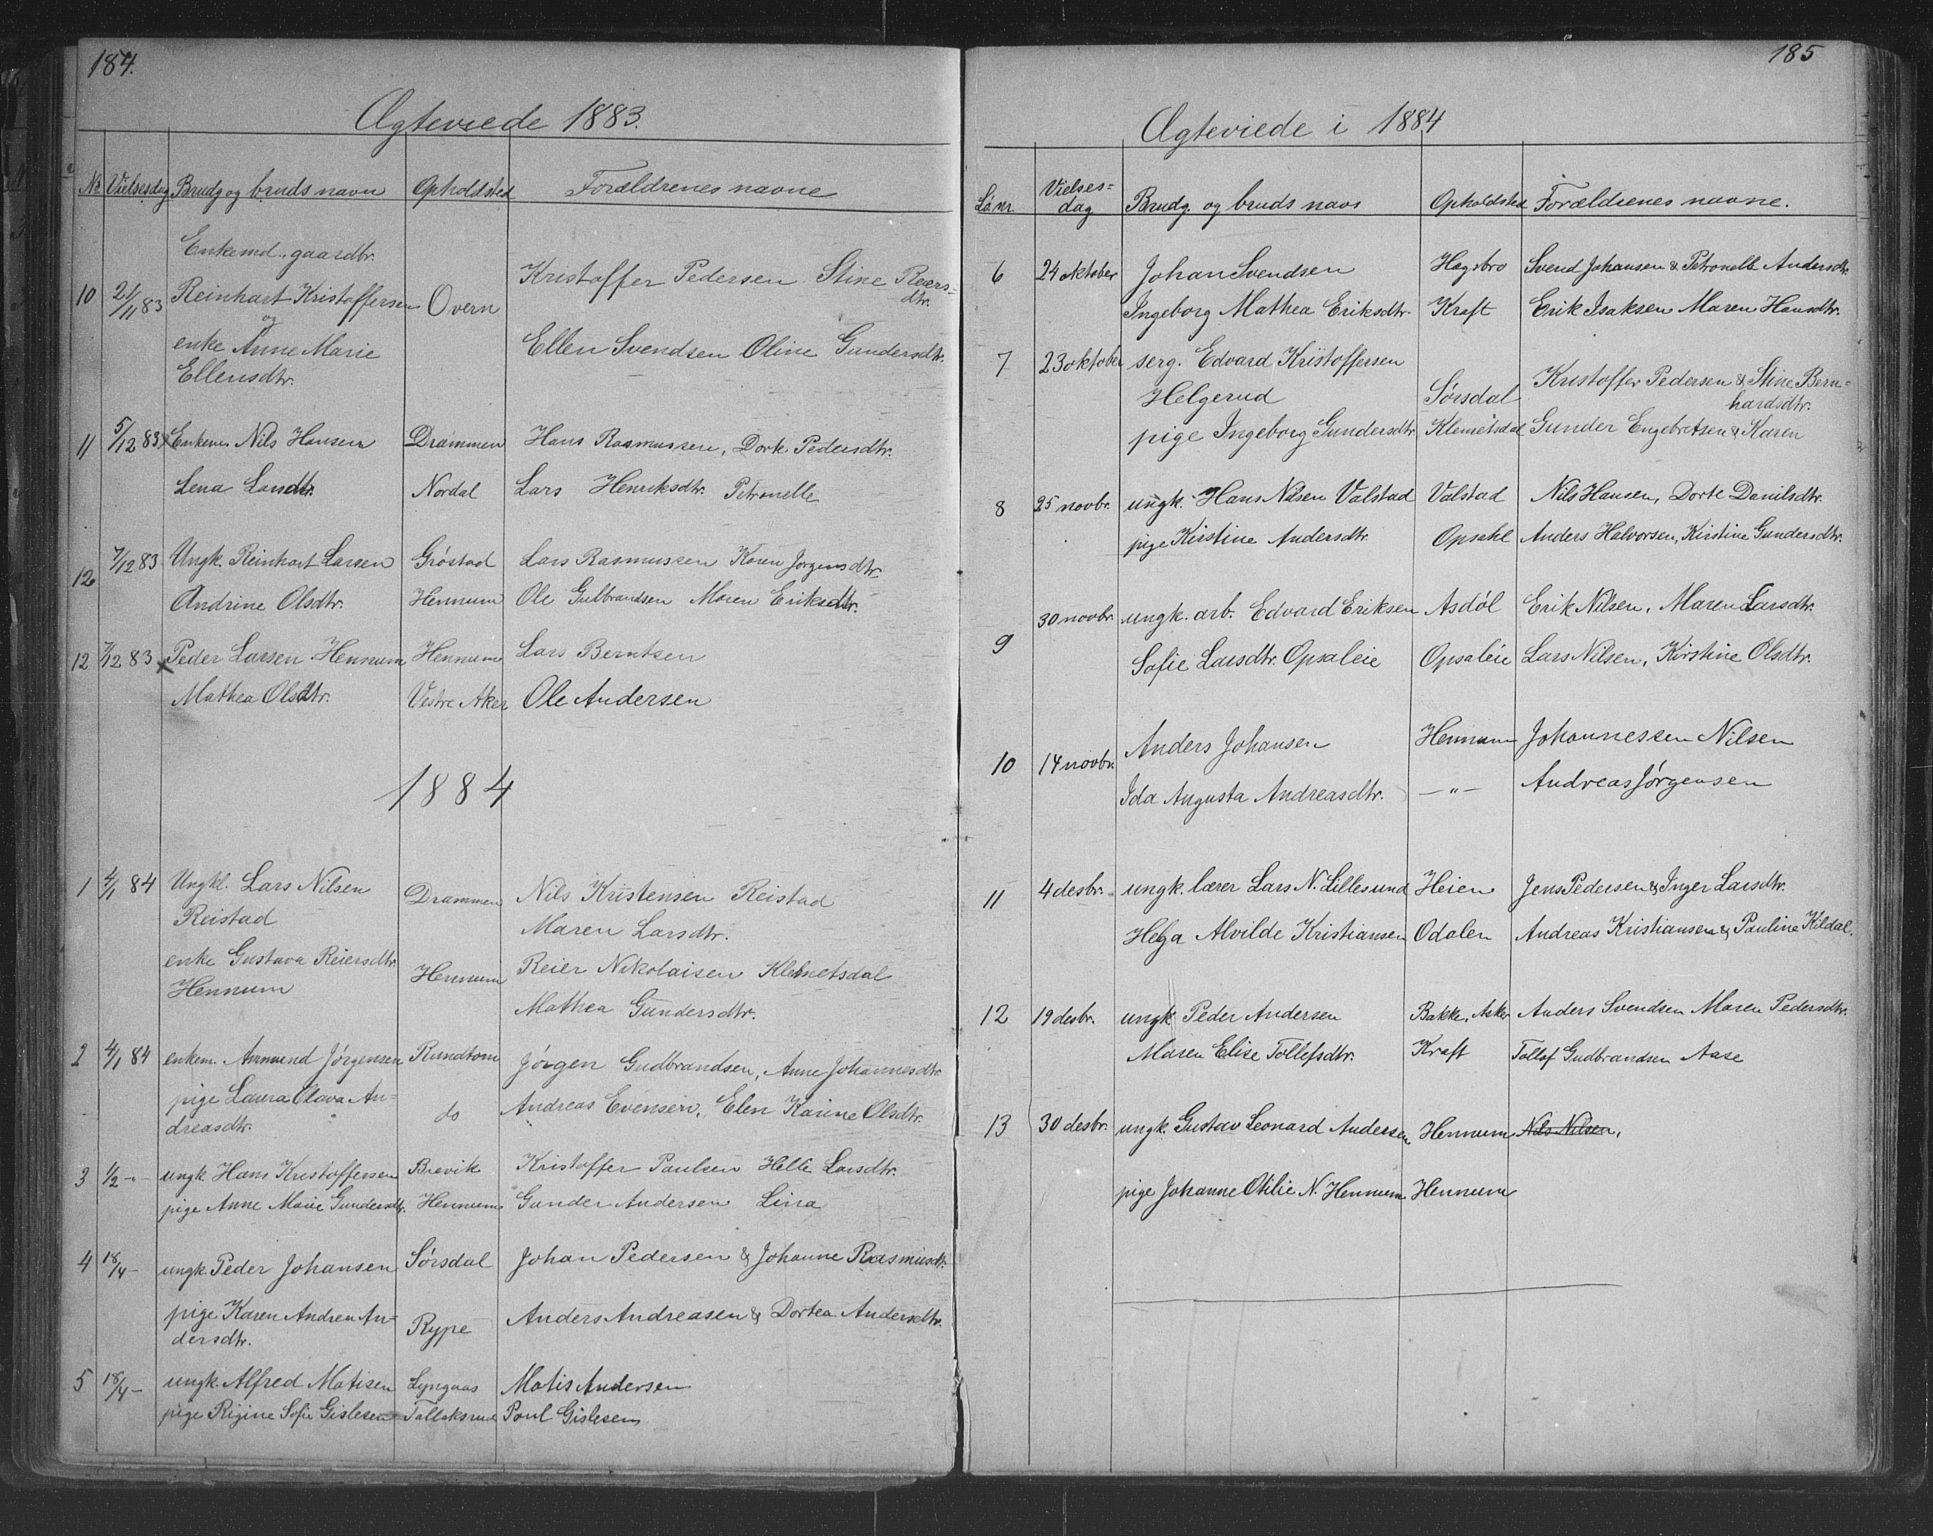 184.
Ægteviede 1883.
No Vielsesdag Brudg og bruds navn Opholdsted Forældrenes navne
Enkemd. gaardbr.
10 21/11 83 Reinhart Kristoffersen Overn Kristoffer Pedersen Stine
dtr.
og
enke Anne Marie Ellen Svendsen Oline Gundersdtr.
Ellensdtr.
11 5/12 83 Enkem Nils Hansen Drammen Hans Rasmussen, Dorte Pedersdtr.
Lena Nordal Lars Henriksdtr. Petronelle
12 7/12 83 Ungk. Reinhart Larsen Grøstad Lars Rasmussen Karen Jørgensdtr.
Andrine Olsdtr. Hennum Ole Gulbrandsen Maren Eriksdtr.
12 7/12 83 Peder Larsen Hennum Hennum Lars Berntsen
Mathea Olsdtr. Vestre Aker Ole Andersen
1884
1 4/1 84 Ungkl. Lars Nilsen Drammen Nils Kristensen Reistad
Reistad Maren Larsdtr.
enke Gustava Reiersdtr. Hennum Reier Nikolaisen Klemetsdal
Hennum Mathea Gundersdtr.
2 4/1 84 enkem. Ammund Jørgensen Rundtom Jørgen Gudbrandsen, Anne Johannesdtr.
pige Laura Olava An- do Andreas Evensen, Elen Karine Olsdtr.
dreasdtr.
3 1/2 -"- ungk. Hans Kristoffersen Brevik Kristoffer Paulsen Helle Larsdtr.
pige Anne Marie Gundersdtr. Hennum Gunder Andersen Lina
4 18/4 - ungk. Peder Johansen Sørsdal Johan Pedersen & Johanne Rasmusdtr.
pige Karen Andrea An- Rype Anders Andreasen & Dortea Andersdtr.
dersdtr.
5 18/4 - ungk. Alfred Matisen Lyngaas Matis Andersen
pige Rigine Sofie Gislesen Tollaksrud Poul Gislesen
185
Ægteviede i 1884
Lønr. Vielses-
dag Brudg. og bruds navs Opholdsted Forældrenes navne.
6 24 oktober Johan Svendsen Hagsbro Svend Johansen & Petronelle Andersdtr.
Ingeborg Mathea Eriksdtr. Kraft Erik Isaksen Maren Hansdtr.
7 23 oktober serg. Edvard Kristoffersen
Helgerud Sørsdal Kristoffer Pedersen & Stine Bern-
hardsdtr.
pige Ingeborg Gundersdtr. Klemetsdal Gunder Engebretsen & Karen
8 25 novbr. ungk. Hans Nilsen Valstad Valstad Nils Hansen, Dorte Danilsdtr.
pige Kirstine Andersdtr. Opsahl Anders Halvorsen, Kirstine Gundersdtr.
9 30 novbr. ungk. arb. Edvard Eriksen Asdøl Erik Nilsen, Maren Larsdtr.
Sofie Larsdtr. Opsaleie Opsaleie Lars Nilsen, Kirstine Olsdtr.
10 14 novbr. Anders Johansen Hennum Johannessen Nilsen
Ida Augusta Andreasdtr. -"- Andreas Jørgensen
11 4 desbr. ungk. lærer Lars N. Lillesund Heien Jens Pedersen & Inger Larsdtr.
Helga Alvilde Kristiansen Odalen Andreas Kristiansen & Pauline Kildal.
12 19 desbr. ungk Peder Andersen Bakke, Asker Anders Svendsen Maren Pedersdtr.
Maren Elise Tollefsdtr. Kraft Tollof Gudbrandsen Aase
13 30 desbr. ungk. Gustav Leonard Andersen Hennum Nils Nilsen,
pige Johanne Otilie N. Hennum Hennum